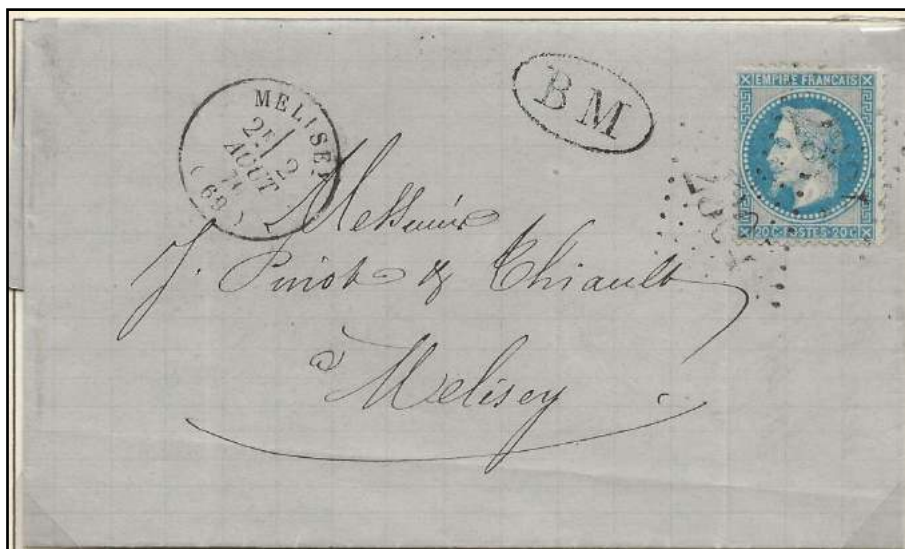 MELISEY
2E
2
AOUT
71
(69)
B M
EMPIRE FRANÇAIS
20 C. POSTES 20 C.
Messieurs
J. Pinot & Thiault
à
Melisey